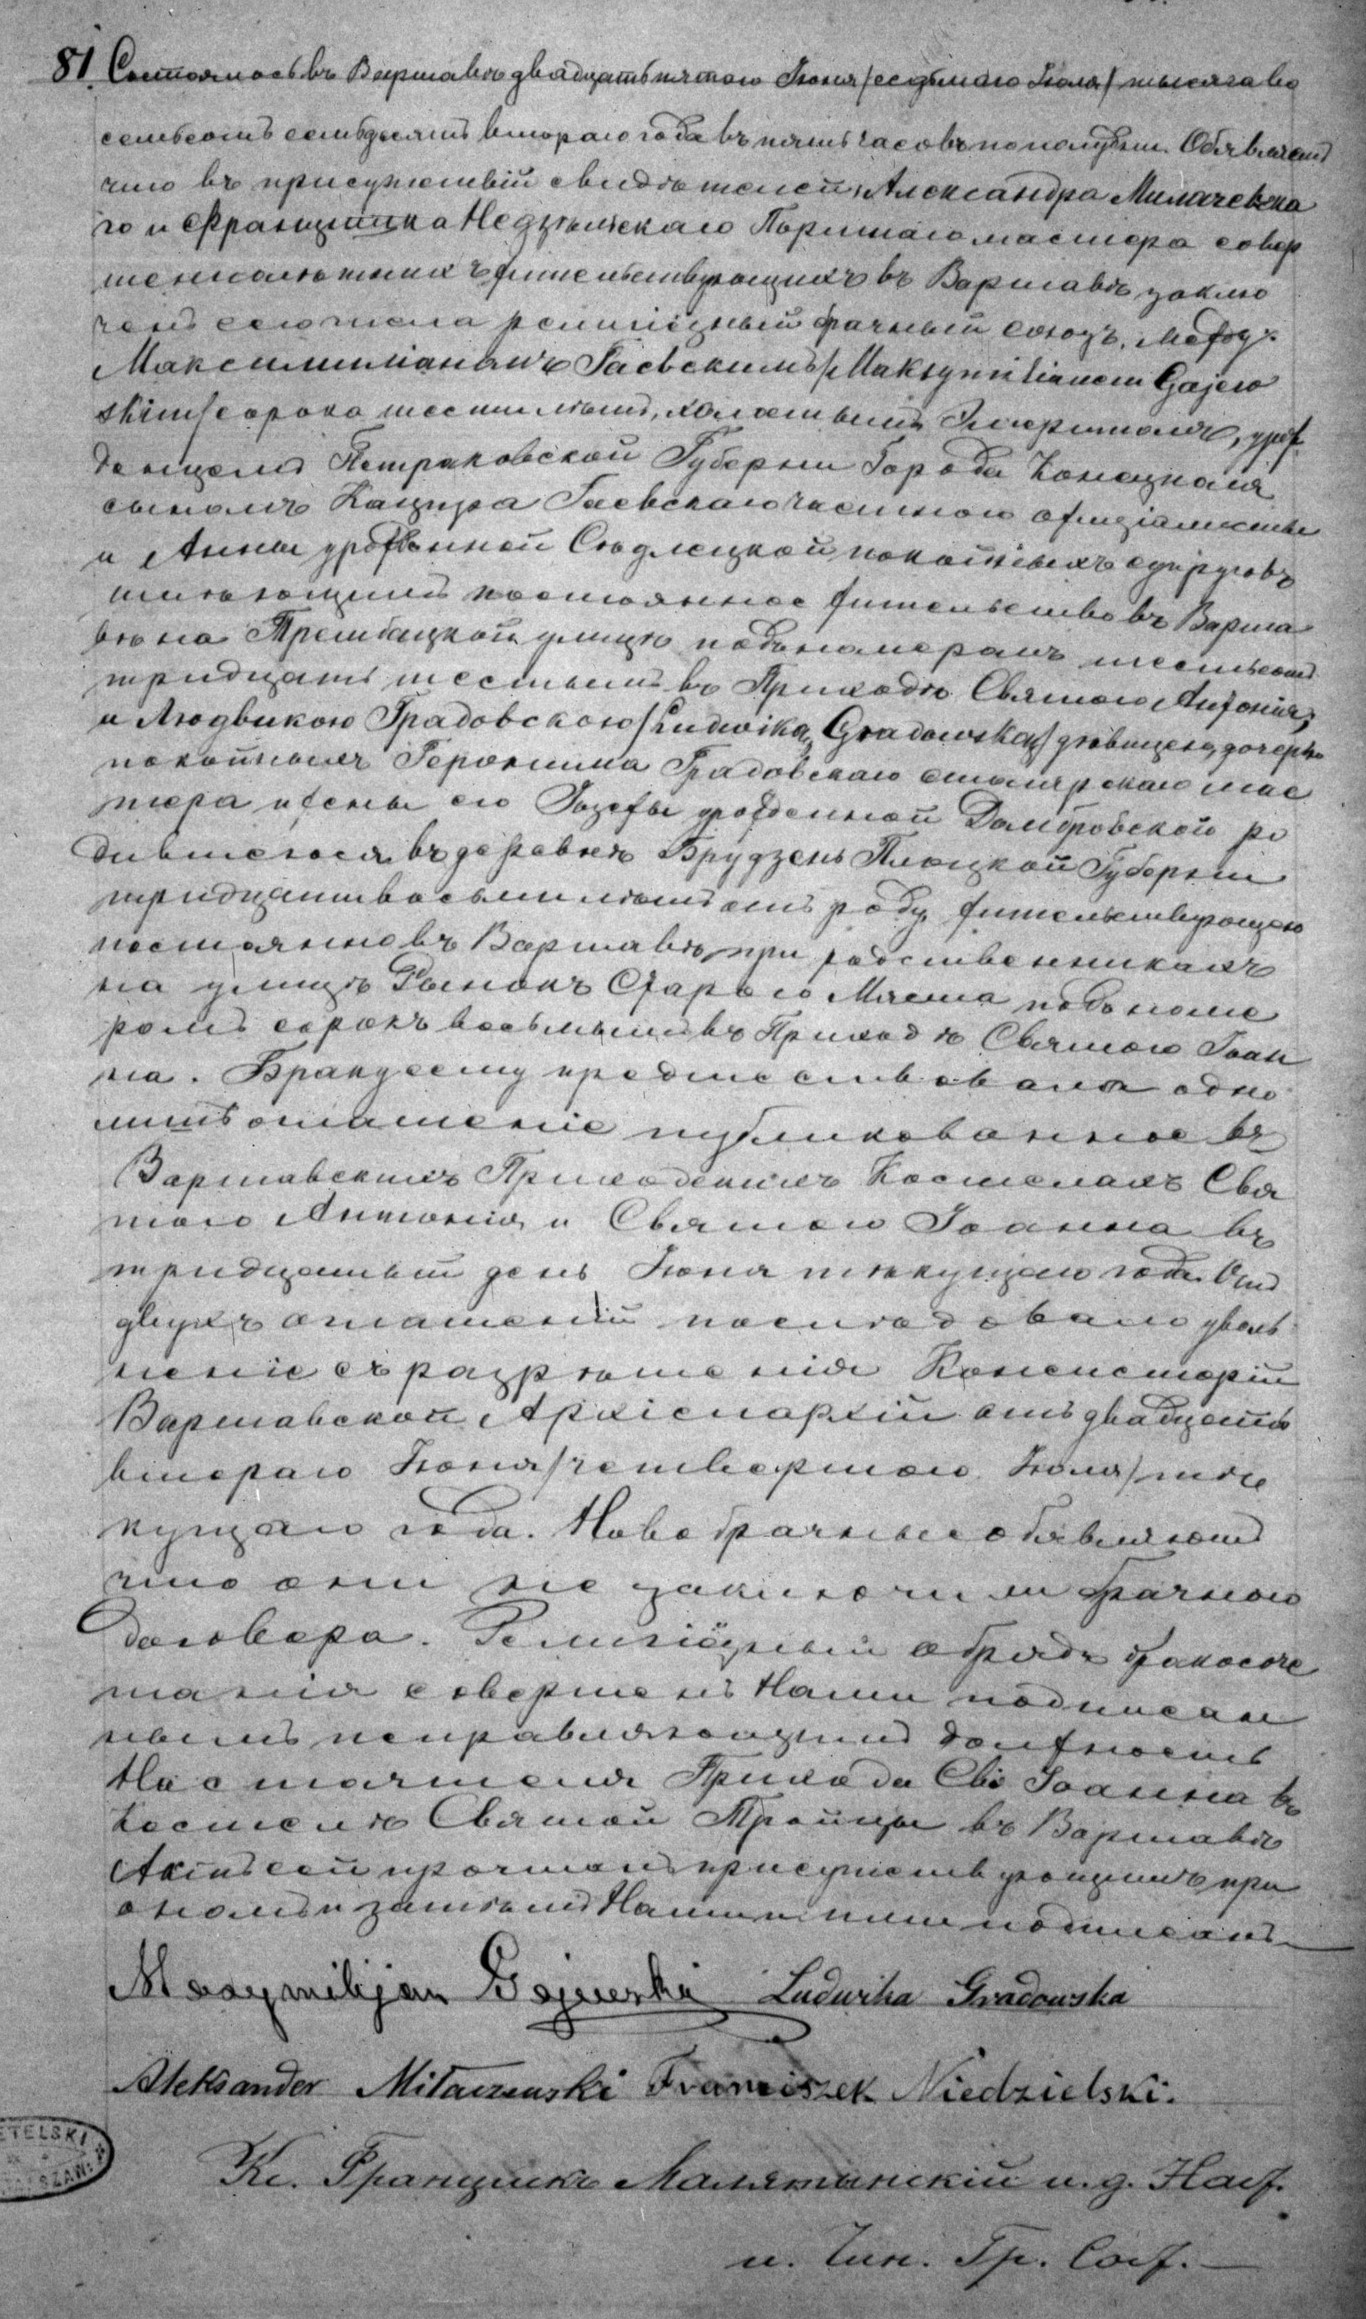 81. Состоялось въ Варшавѣ двадцать пятого Іюня /седьмаго Іюля/ тысяча во
семьсотъ семьдесятъ втораго года въ пять часовъ пополудни. Объявляемъ
что въ присутствіи свидѣтелей, Александра Милачевска
го и Францишка Недзѣльскаго совер
шеннолѣтнихъ жительствующихъ въ Варшавѣ, заклю
ченъ сего числа религіозный брачный союзъ, между
Максимиліаномъ Гаевскимъ /Maksymilianem Gajew
skim/ сорока шести лѣтъ, холостымъ, урож
денцемъ Петраковской Губерніи Города Конецполя
сыномъ Гаевскаго частного офиціалиста
и Анны урожденной Сѣдлецкой покойныхъ супруговъ
имѣющимъ постоянное жительство въ Варша
вѣ на Трембацкой улицѣ подъ номеромъ шестьсотъ
тридцать шестымъ въ Приходѣ Святого Антонія;
и Людвикою Градовскою /Ludwiką Gradowską/ дѣвицею, дочерью
покойныхъ Геронима Градовскаго столярскаго мас
тера и жены его Іозефы урожденной Домбровской ро
дившегося въ деревнѣ Брудзень Плоцкой Губерніи
тридцати восьми лѣтъ отъ роду, жительствующею
постоянно въ Варшавѣ, при родственникахъ
на улицѣ Рынокъ Старого Мяста подъ номе
ромъ сорокъ восьмымъ въ Приходѣ Святого Іоан
на. Браку сему предшествовало одно
лишь оглашеніе публикованное въ
Варшавскихъ Приходскихъ Костелахъ Свя
того Антонія и Святого Іоанна въ
тридцатый день Іюня текущаго года. Отъ
двухъ оглашеній послѣдовало уволь
неніе съ разрѣшенія Консисторіи
Варшавской Архіепархіи отъ двадцать
втораго Іюня /четвертого Іюля/ те
кущаго года. Новобрачные объявляютъ
что они не заключили брачного
договора. Религіозный обрядъ бракосоче
танія совершенъ Нами подписан
нымъ исправляющимъ должность
Настоятеля Прихода Св. Іоанна въ
Костелѣ Святой Тройцы въ Варшавѣ
Актъ сей прочтенъ присутствующимъ при
ономъ и затѣмъ Нами и ими подписанъ
Maxymilijan Gajewski Ludwika Gradowska
Aleksander Miłaczewski Franciszek Niedzielski.
Кс. Францишекъ Малятынскій и. д. Наст.
и. Чин. Гр. Сост.
ETELSKI